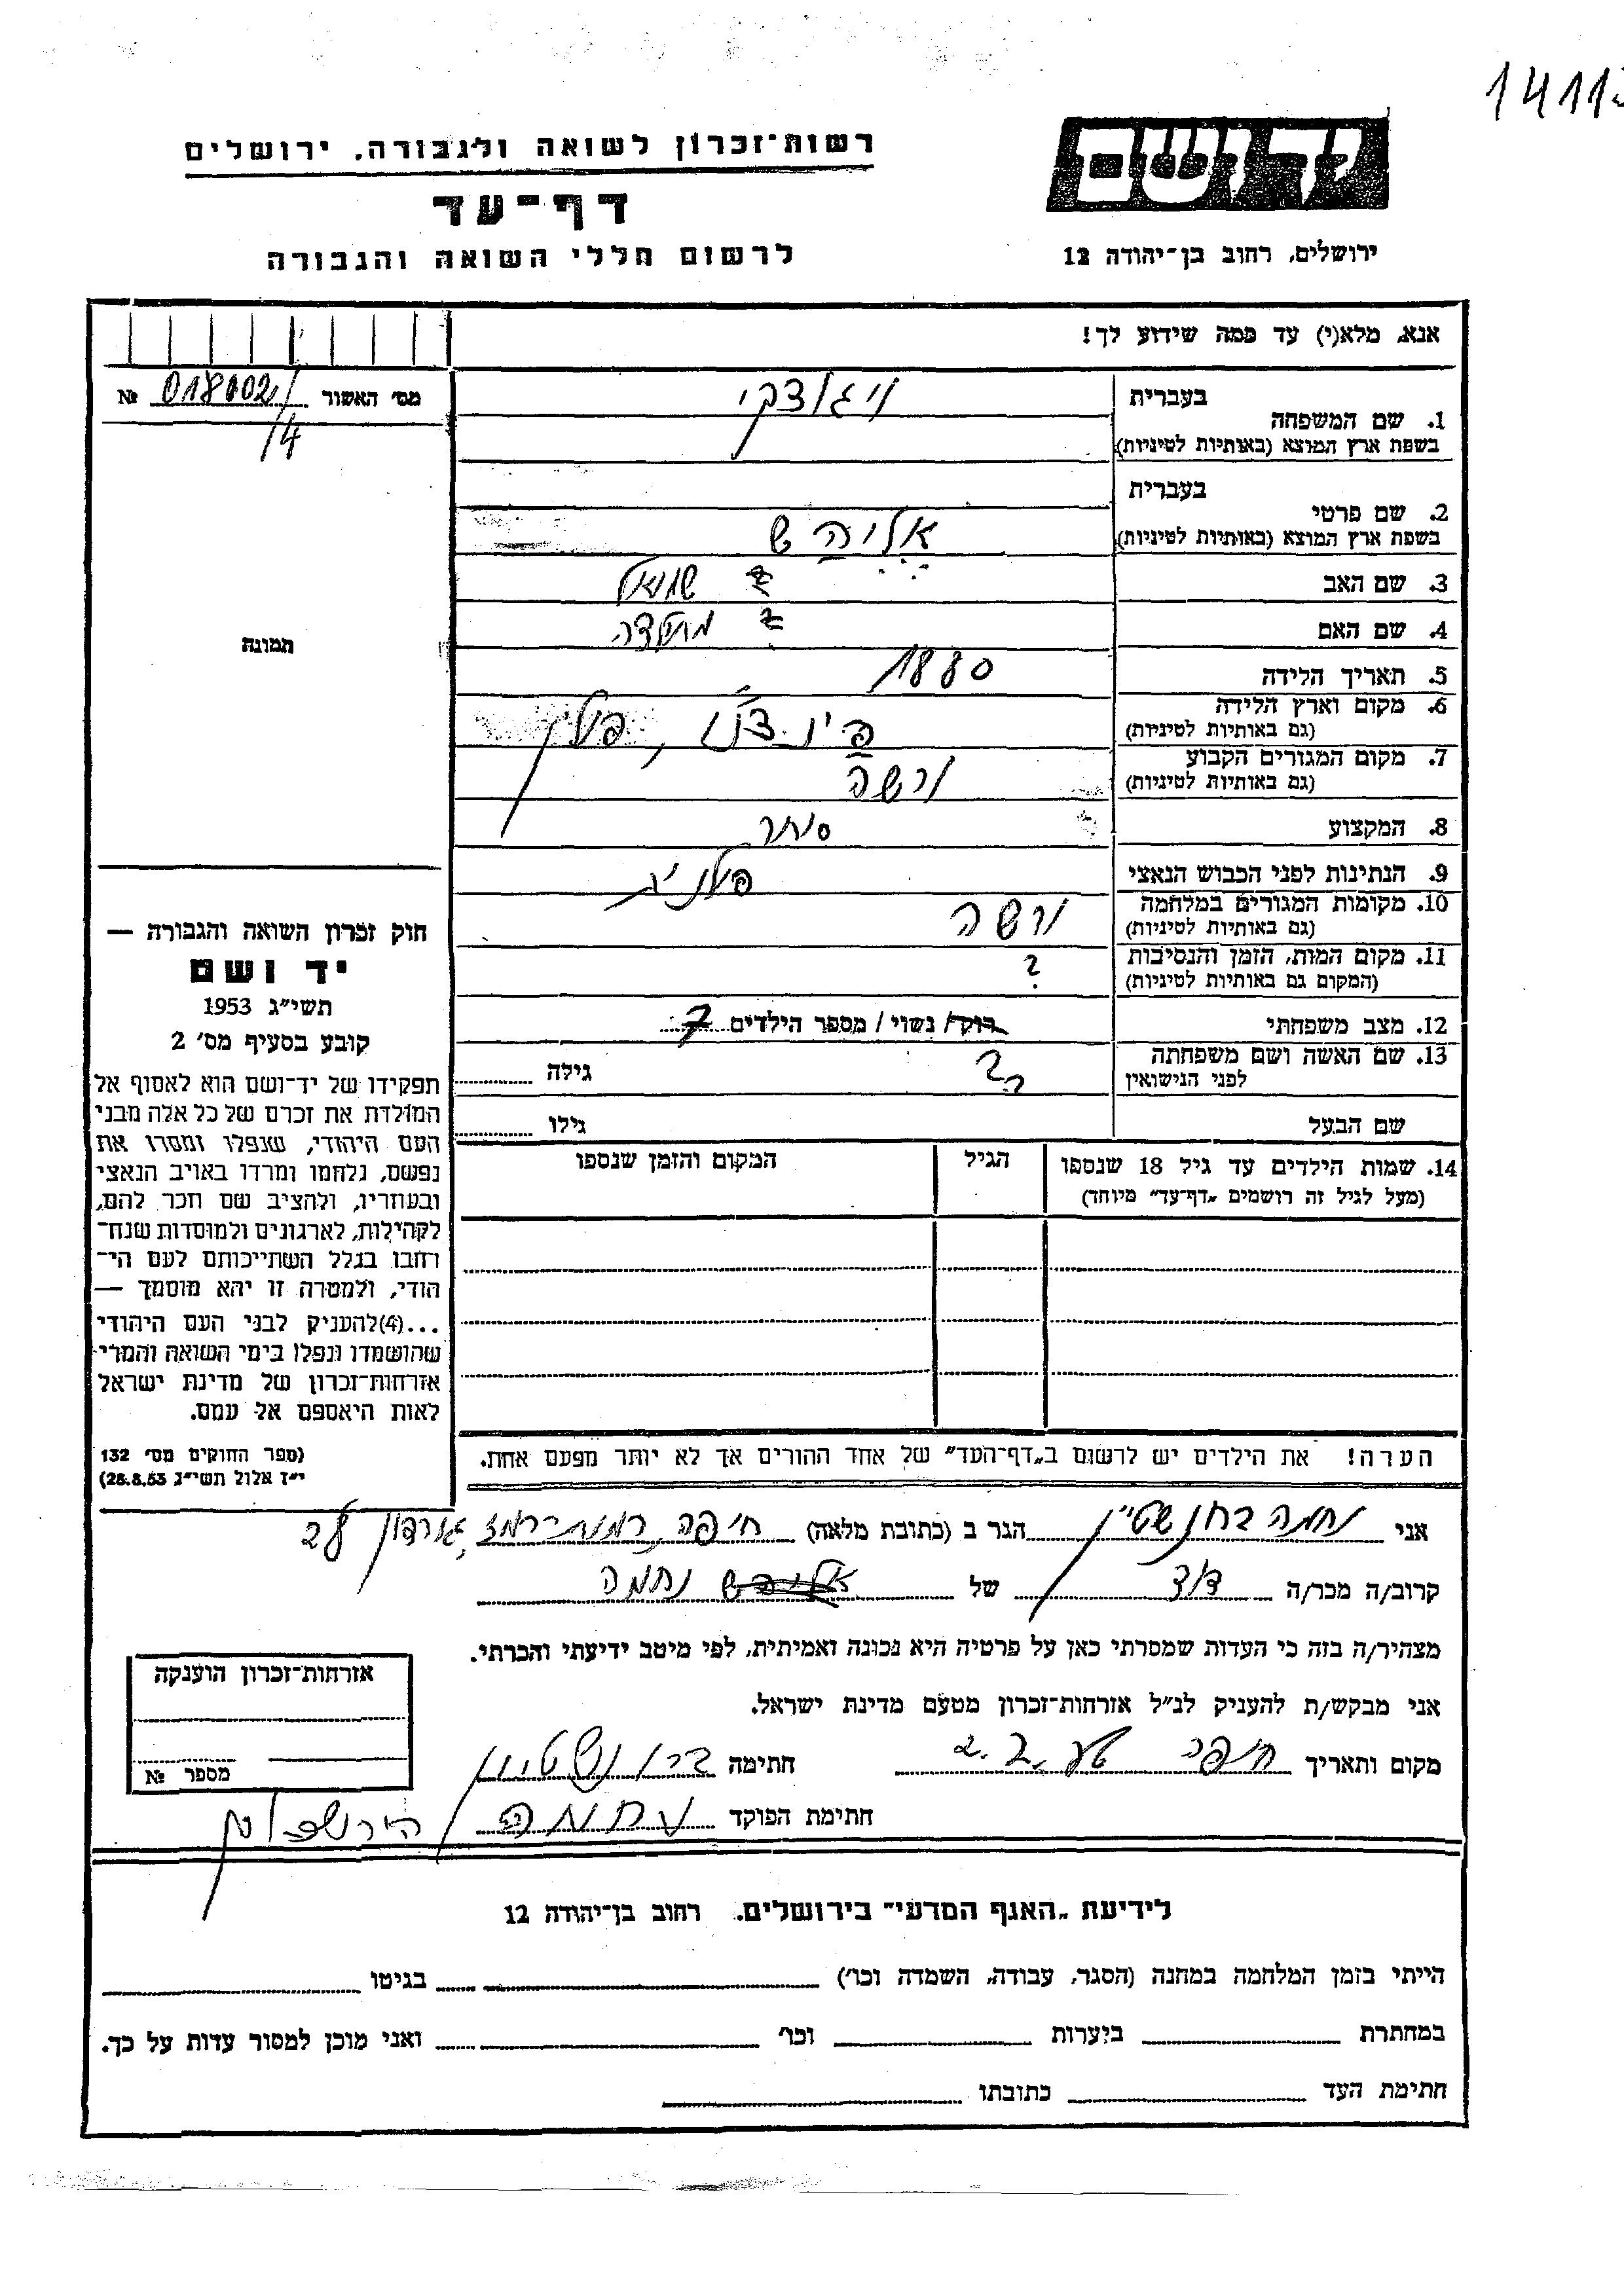 1411
יד ושם
רשות־זכרון לשואה ולגבורה, ירושלים
דף־עד
לרשום חללי השואה והגבורה
ירושלים, רחוב בן־יהודה 12
אנא, מלא(י) עד כמה שידוע לך!
מס׳ האשור 018002/ №
/4
בעברית
1. שם המשפחה
ויגודצקי
בשפת ארץ המוצא (באותיות לטיניות)
בעברית
2. שם פרטי
בשפת ארץ המוצא (באותיות לטיניות)
3. שם האב שמואל
4. שם האם
5. תאריך הלידה 1880
6. מקום וארץ הלידה
(גם באותיות לטיניות)
פולין
7. מקום המגורים הקבוע
(גם באותיות לטיניות)
ורשה
8. המקצוע סוחר
9. הנתינות לפני הכבוש הנאצי
10. מקומות המגורים במלחמה
(גם באותיות לטיניות)
ורשה
11. מקום המות, הזמן והנסיבות
(המקום גם באותיות לטיניות)
?
12. מצב משפחתי רוק/ נשוי / מספר הילדים
13. שם האשה ושם משפחתה
לפני הנישואין
? גילה
שם הבעל גילו
14. שמות הילדים עד גיל 18 שנספו הגיל המקום והזמן שנספו
(מעל לגיל זה רושמים „דף־עד״ מיוחד)
הערה! את הילדים יש לרשום ב„דף־העד״ של אחד ההורים אך לא יותר מפעם אחת.
תמונה
חוק זכרון השואה והגבורה —
יד ושם
תשי״ג 1953
קובע בסעיף מס׳ 2
תפקידו של יד־ושם הוא לאסוף אל
המולדת את זכרם של כל אלה מבני
העם היהודי, שנפלו ומסרו את
נפשם, נלחמו ומרדו באויב הנאצי
ובעוזריו, ולהציב שם וזכר להם,
לקהילות, לארגונים ולמוסדות שנח־
רחבו בגלל השתייכותם לעם הי־
הודי, ולמטרה זו יהא מוסמך —
...(4)להעניק לבני העם היהודי
שהושמדו ונפלו בימי השואה והמרי
אזרחות־זכרון של מדינת ישראל
לאות היאספם אל עמם.
(ספר החוקים מס׳ 132
י״ז אלול תשי״ג 28.8.53)
אני נחמה ברונשטיין הגר ב (כתובת מלאה) חיפה, רמת־רמז, גורדון
קרוב/ה מכר/ה דוד של נחמה
מצהיר/ה בזה כי העדות שמסרתי כאן על פרטיה היא נכונה ואמיתית, לפי מיטב ידיעתי והכרתי.
אני מבקש/ת להעניק לנ״ל אזרחות־זכרון מטעם מדינת ישראל.
מקום ותאריך חיפה חתימה ברונשטיין
חתימת הפוקד נחמה
אזרחות־זכרון הוענקה
מספר №
לידיעת „האגף המדעי״ בירושלים, רחוב בן־יהודה 12
הייתי בזמן המלחמה במחנה (הסגר, עבודה, השמדה וכו׳) בגיטו
במחתרת ביערות וכו׳ ואני מוכן למסור עדות על כך.
חתימת העד כתובתו